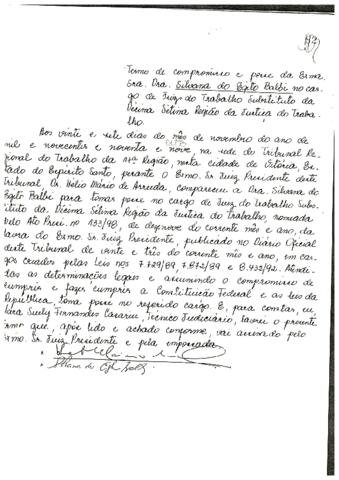 Termo de compromisso e posse da Exma.
Sra. Dra. Silvana do Egito Balbi no car-
go de Juiz do Trabalho Substituto da
Décima Sétima Região da Justiça do Traba-
lho.
Aos vinte e sete dias do mês de novembro do ano de
mil e novecentos e noventa e nove, na sede do Tribunal Re-
gional do Trabalho da 17ª Região, nesta cidade de Vitória, Es-
tado do Espírito Santo, perante o Exmo. Sr. Juiz Presidente deste
Tribunal, Dr. Hélio Mário de Arruda, compareceu a Dra. Silvana do
Egito Balbi para tomar posse no cargo de Juiz do Trabalho Subs-
tituto da Décima Sétima Região da Justiça do Trabalho, nomeada
pelo Ato Presi. nº 133/98, de dezenove do corrente mês e ano, da
lavra do Exmo. Sr. Juiz Presidente, publicado no Diário Oficial
deste Tribunal de vinte e três do corrente mês e ano, em car-
gos criados pelas Leis nos 7.729/89, 7.872/89 e 8.432/92. Atendi-
das as determinações legais e assumindo o compromisso de
cumprir e fazer cumprir a Constituição Federal e as leis da
República, toma posse no referido cargo. E, para constar, eu,
Suely Fernandes Técnico Judiciário, lavrei o presente
termo que, após lido e achado conforme, vai assinado pelo
Exmo. Sr. Juiz Presidente e pela empossada.